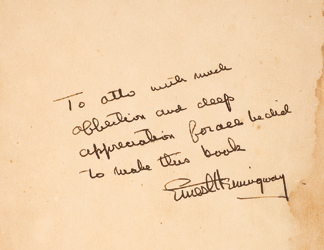 To Otto with much
affection and deep
appreciation for all he did
to make this book
Ernest Hemingway